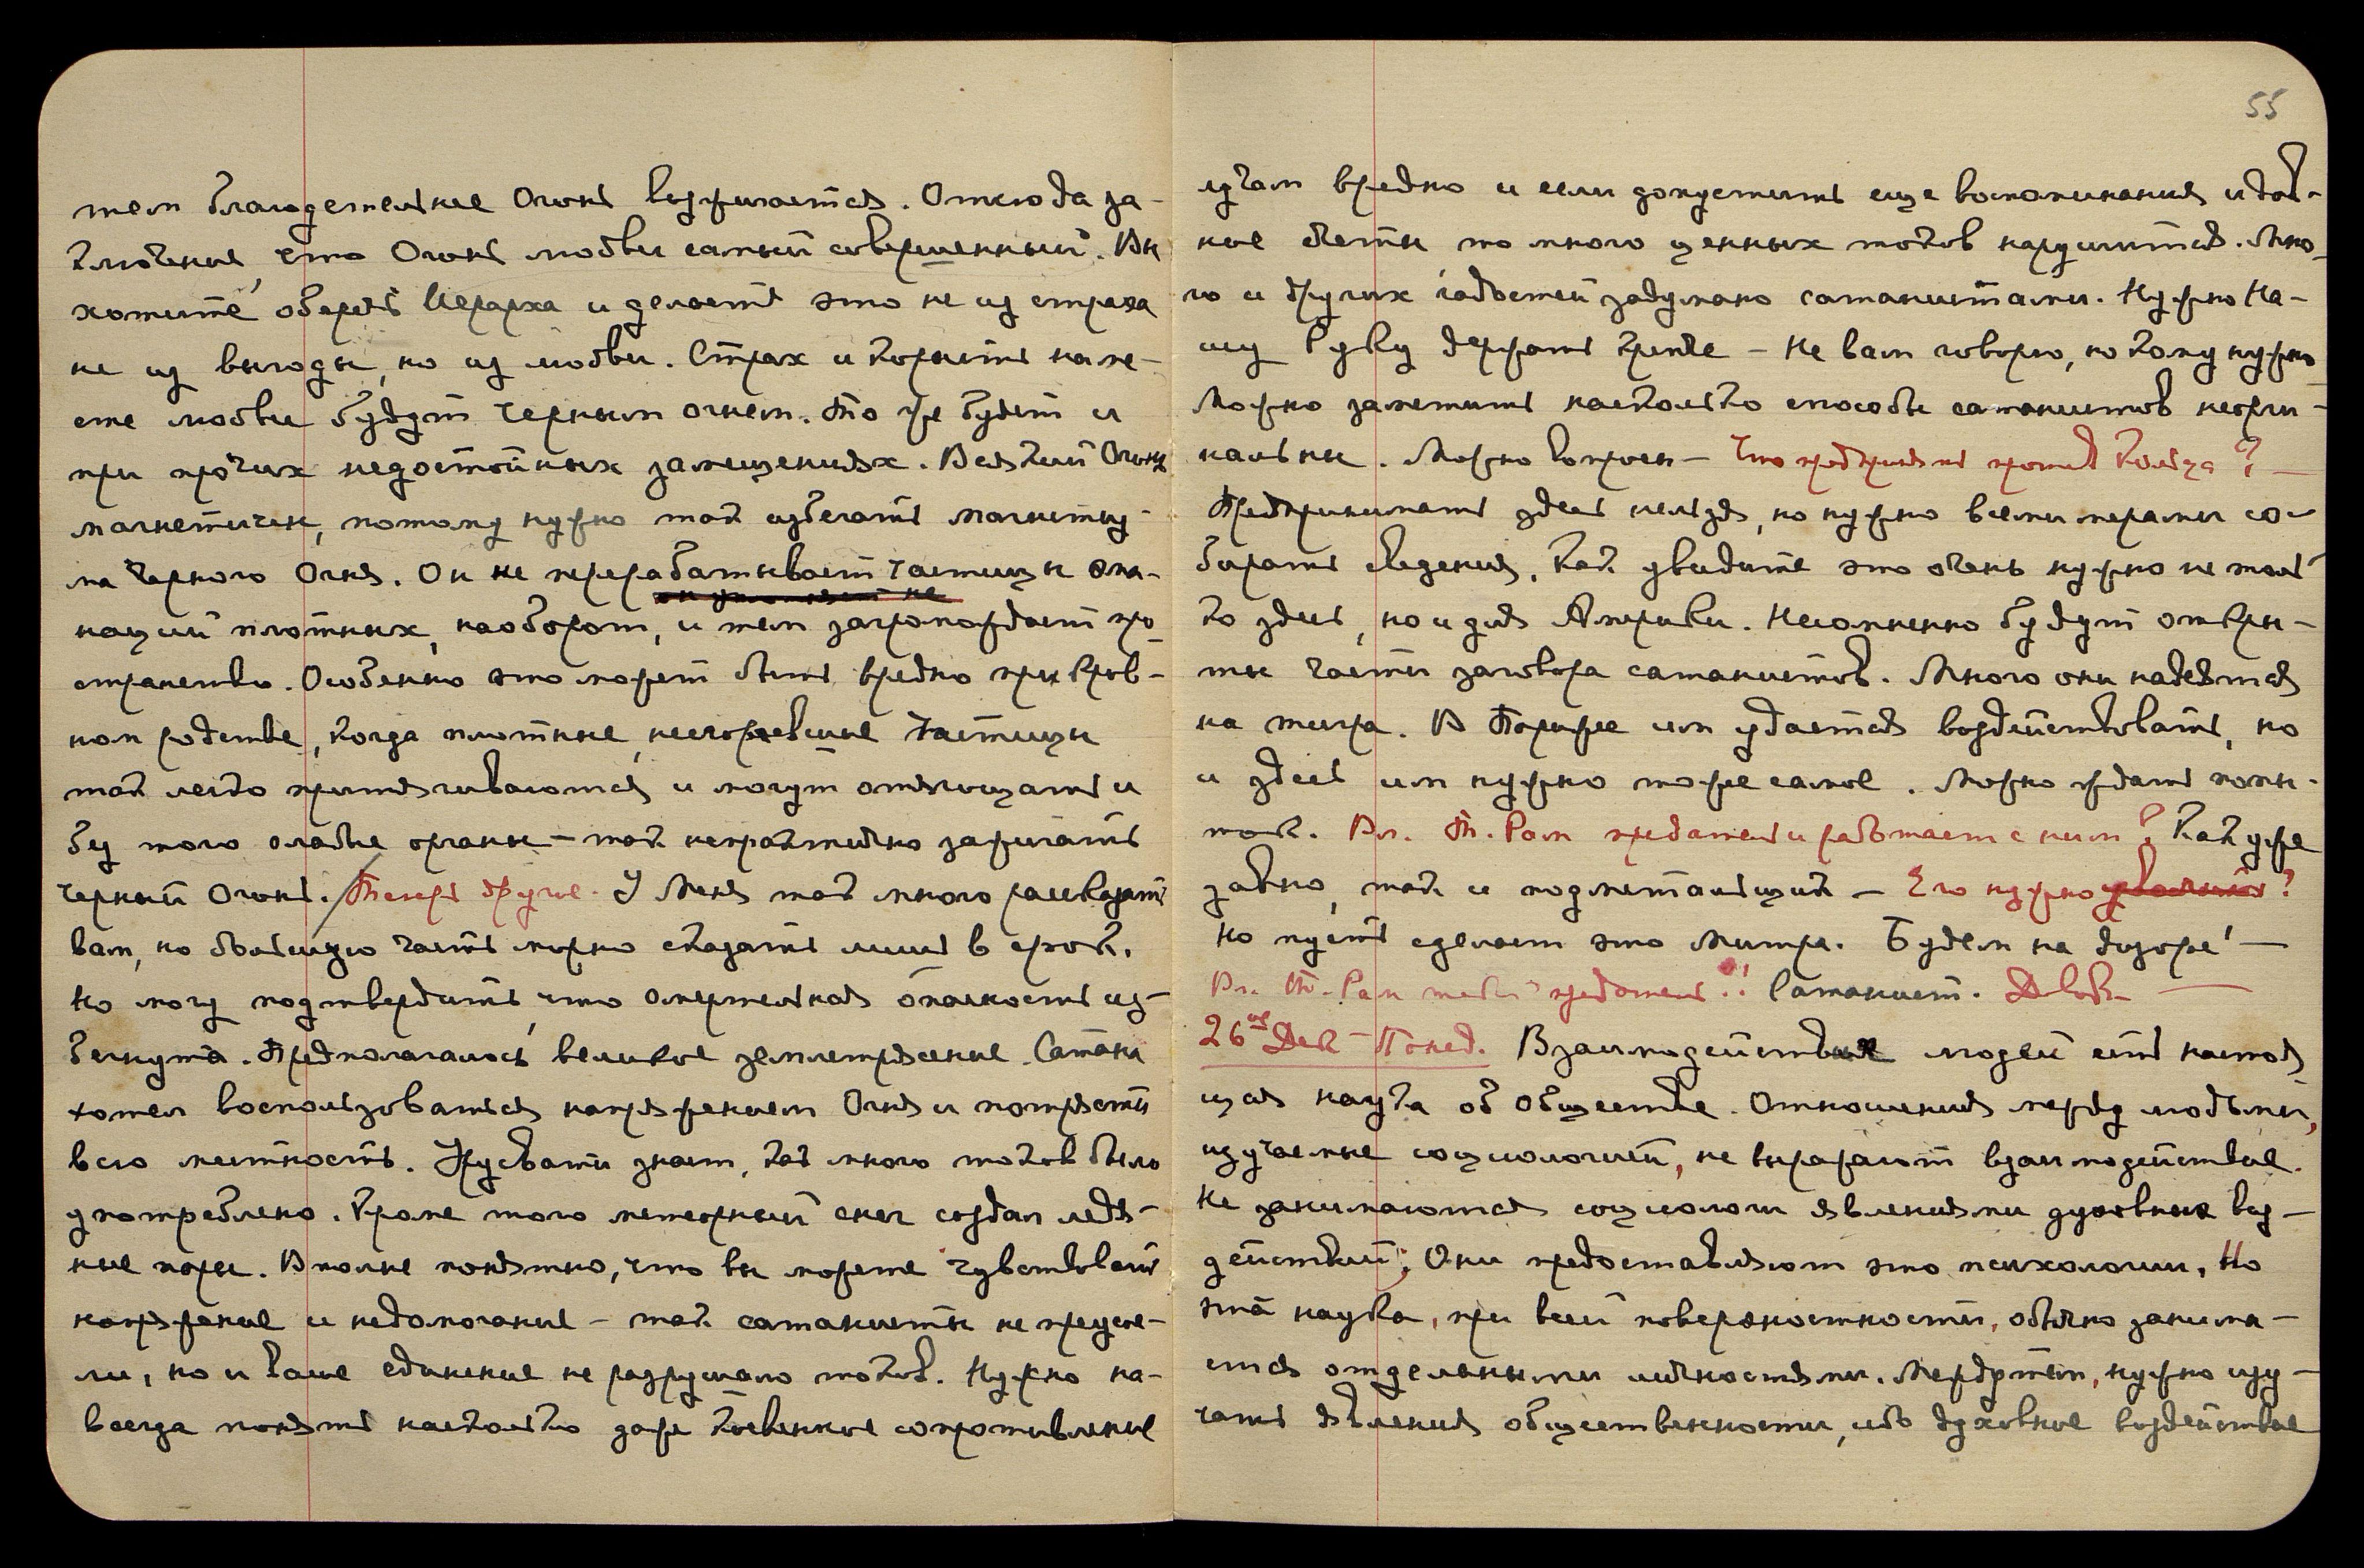 тем благодетельнее Огонь возжигается. Отсюда за-
ключение, что Огонь любви самый совершенный. Вы
хотите оберечь Иерарха и делаете это не из страха
не из выгоды, но из любви. Страх и корысть на ме-
сте любви будут черным огнем. То же будет и
при прочих недостойных замещениях. Всякий Огонь
магнетичен, потому нужно так избегать магнетиз-
ма Черного Огня. Он не перерабатывает частицы эма-
наций плотных, наоборот, и тем загромождает про-
странство. Особенно это может быть вредно при кров-
ном родстве, когда плотные, несгоревшие частицы
так легко притягиваются и могут отягощать и
без того слабые органы — так непрактично зажигать
черный Огонь. Теперь другое. У Меня так много рассказать
вам, но большую часть можно сказать лишь в срок.
Но могу подтвердить, что смертельная опасность из-
бегнута. Предполагалось великое землетрясение. Сатана
хотел воспользоваться напряжением Огня и потрясти
всю местность. Урусвати знает, как много токов было
употреблено. Кроме того метеорный снег создал ледя-
ные поры. Вполне понятно, что вы можете чувствовать
напряжение и недомогание — так сатанисты не преуспе-
ли, но и ваше единение не разрушало токов. Нужно на-
всегда понять насколько даже косвенное сопротивление
55
лучам вредно и если допустить еще воспоминания и дав-
ные счеты то много ценных токов нарушится. Мно-
го и других гадостей задумано сатанистами. Нужно На-
шу Руку держать крепче — не вам говорю, но кому нужно
Можно заметить насколько способы сатанистов неориги-
нальны. Можно вопросы — Что предпринять против Кольца? —
Предпринимать здесь нельзя, но нужно всеми мерами со-
бирать сведения, как увидите это очень нужно не толь-
ко здесь, но и для Америки. Несомненно будут откры-
ты части заговора сатанистов. Много они надеятся
на тигра. В Париже им удается воздействовать, но
и здесь им нужно тоже самое. Можно ждать попы-
ток. Вл. Т. Рам предатель и работает с ним? Как уже
давно, так и подметальщик — Его нужно уволить?
Но пусть сделает это Митра. Будем на дозоре! —
Вл. Т. Рам предатель!! Сатанист. Довольно —
26ое Дек — Понед. Взаимодействие людей есть настоя
щая наука об обществе. Отношения между людьми,
изучаемые социологией, не выражают взаимодействие.
Не занимаются социологи явлениями духовных воз-
действий; Они предоставляют это психологии. Но
эта наука, при всей поверхностности, обычно занима-
ется отдельными личностями. Между тем, нужно изу-
чать явления общественности, ибо духовное воздействие